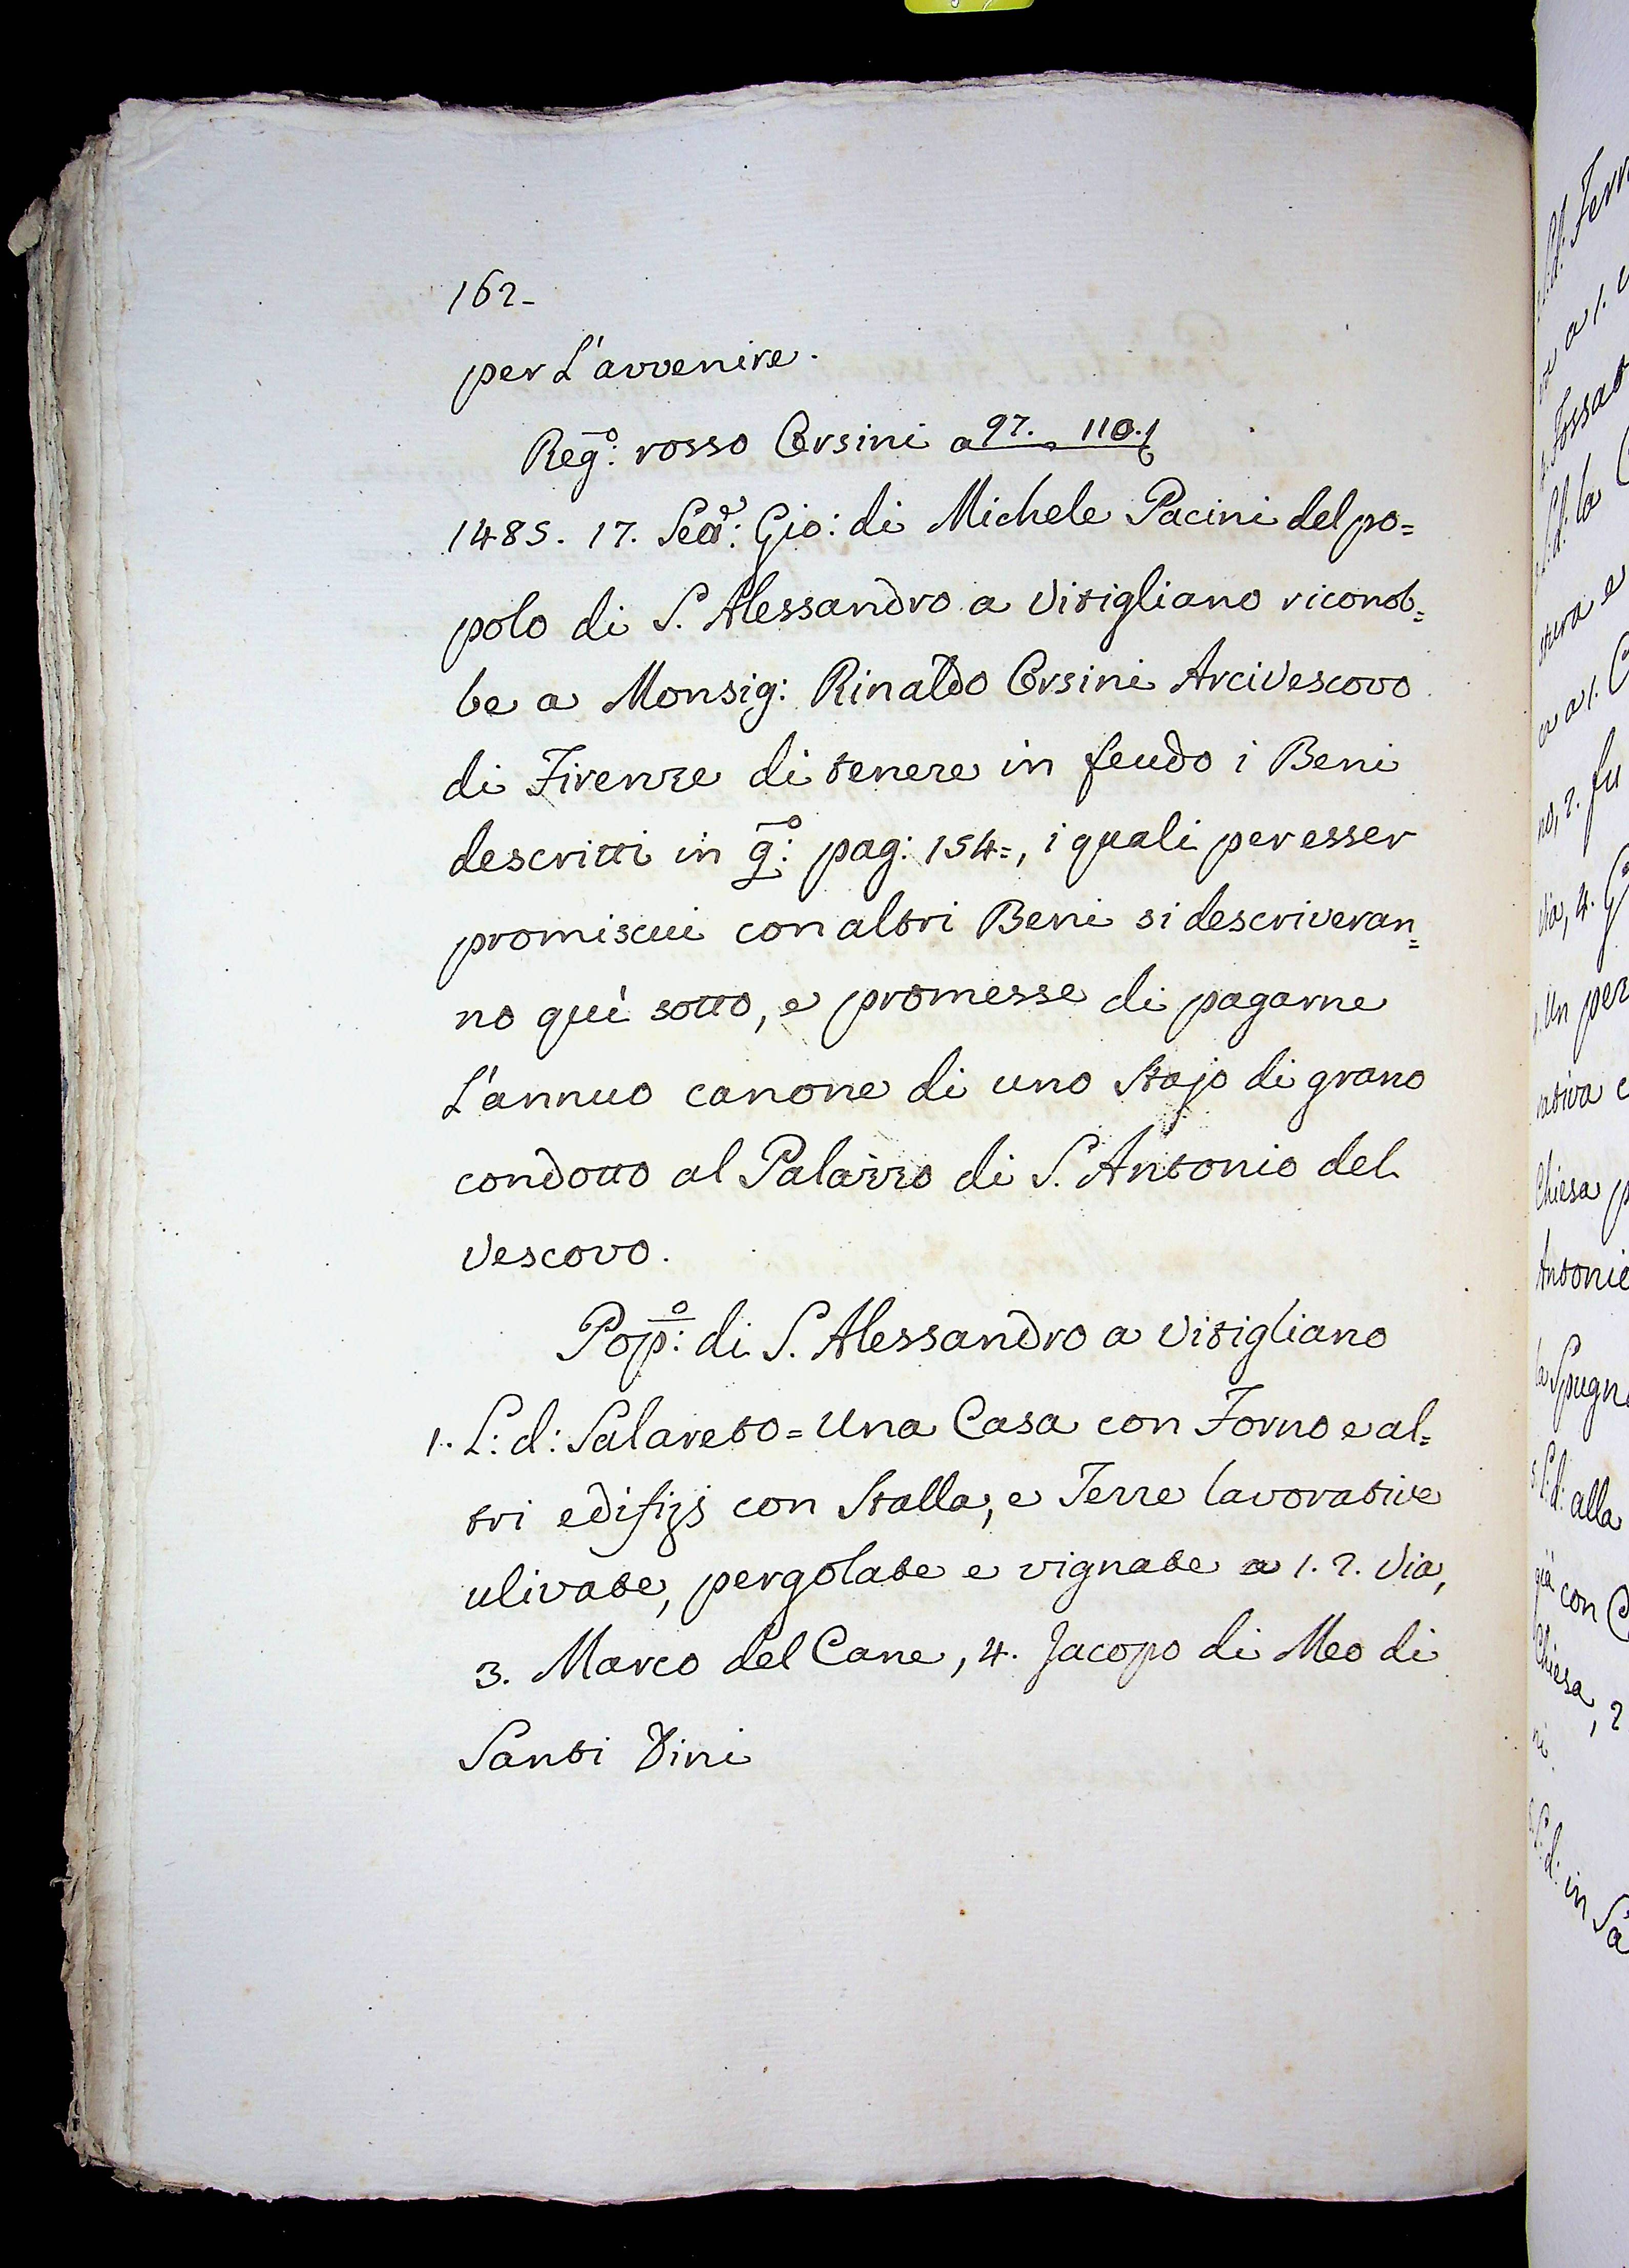 162-
per L'avvenire.
Reg:º rosso Orsini a 97. 110.
1485. 17. Gio: di Michele Pacini del po=
polo di S. Alessandro a Vitigliano riconob=
be a Monsig: Rinaldo Orsini Arcivescovo
di Firenze di tenere in feudo i Beni
descritti in q:º pag: 154=, i quali per esser
promiscui con altri Beni si descriveran=
no quì sotto, e promesse di pagarne
L'annuo canone di uno Stajo di grano
condotto al Palazzo di S. Antonio del
Vescovo.
Pop:º di S. Alessandro a Vitigliano
1. L: d: Salareto = Una Casa con Forno e al=
tri edifizj con Stalla, e Terre lavorative
ulivate, pergolate e vignate a 1. 2. Via,
3. Marco del Cane, 4. Jacopo di Meo di
Santi Dini